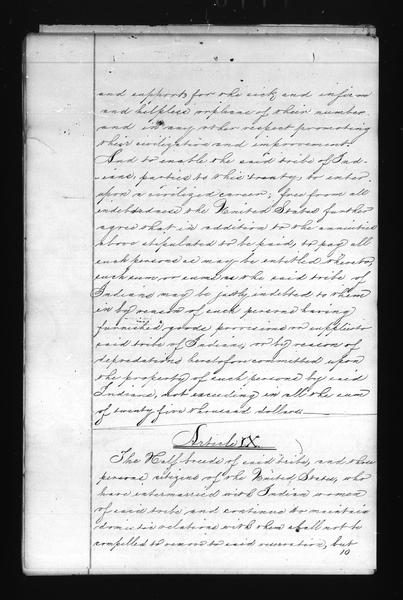 and support for the sick and infirm
and helpless orphans of their number
and in any other respect promoting
their civilization and improvement.
And to enable the said tribe of Ind-
-ians, parties to this treaty, to enter
upon a civilized career, free from all
indebtedness the United States further
agree that in addition to the annuities
above stipulated to be paid, to pay all
such persons as may be entitled thereto
such sum, or sums as the said tribe of
Indians may be justly indebted to them
in by reason of such persons having
furnished goods provisions or supplies to
said tribe of Indians, or by reason of
depredations heretofore committed upon
the property of such persons by said
Indians, not exceeding in all the sum
of twenty five thousand dollars.
Article IX.
The Half breeds of said tribe, and those
persons, citizens of the United States, who
have intermarried with Indian women
of said tribe and continue to maintain
domestic relations with them shall not be
compelled to remove to said reservation, but
10